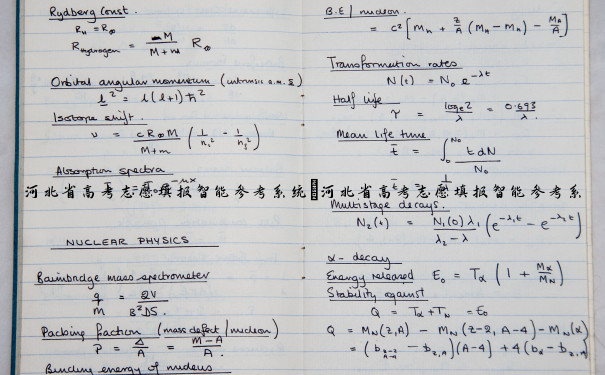 Rydberg Const.
R∞ = R∞
R Hydrogen = M / M+m R∞
Orbital angular momentum (intrinsic a.m. s)
l² = l(l+1)ħ²
Isotope shift.
ν = cR∞M / M+m (1/n₁² - 1/n₂²)
Absorption spectra
NUCLEAR PHYSICS
Bainbridge mass spectrometer
q/m = 2V / B²DS.
Packing fraction (mass defect/nucleon)
P = Δ/A = M-A / A.
Binding energy of nucleus
B.E / nucleon.
= c² [Mn + Z/A (MH - Mn) - MA/A]
Transformation rates
N(t) = N₀ e^-λt
Half life
τ = loge2 / λ = 0.693 / λ.
Mean life time
t̄ = ∫₀^N₀ t dN / N₀
河北省高考志愿填报智能参考系统 河北省高考志愿填报智能参考系
Multistage decays.
N₂(t) = N₁(0)λ₁ / λ₂-λ (e^-λ₁t - e^-λ₂t)
α- decay
Energy released E₀ = Tα (1 + Mα/MN)
Stability against
Q = Tα + TN = E₀
Q = MN(Z,A) - MN(Z-2, A-4) - MN(α)